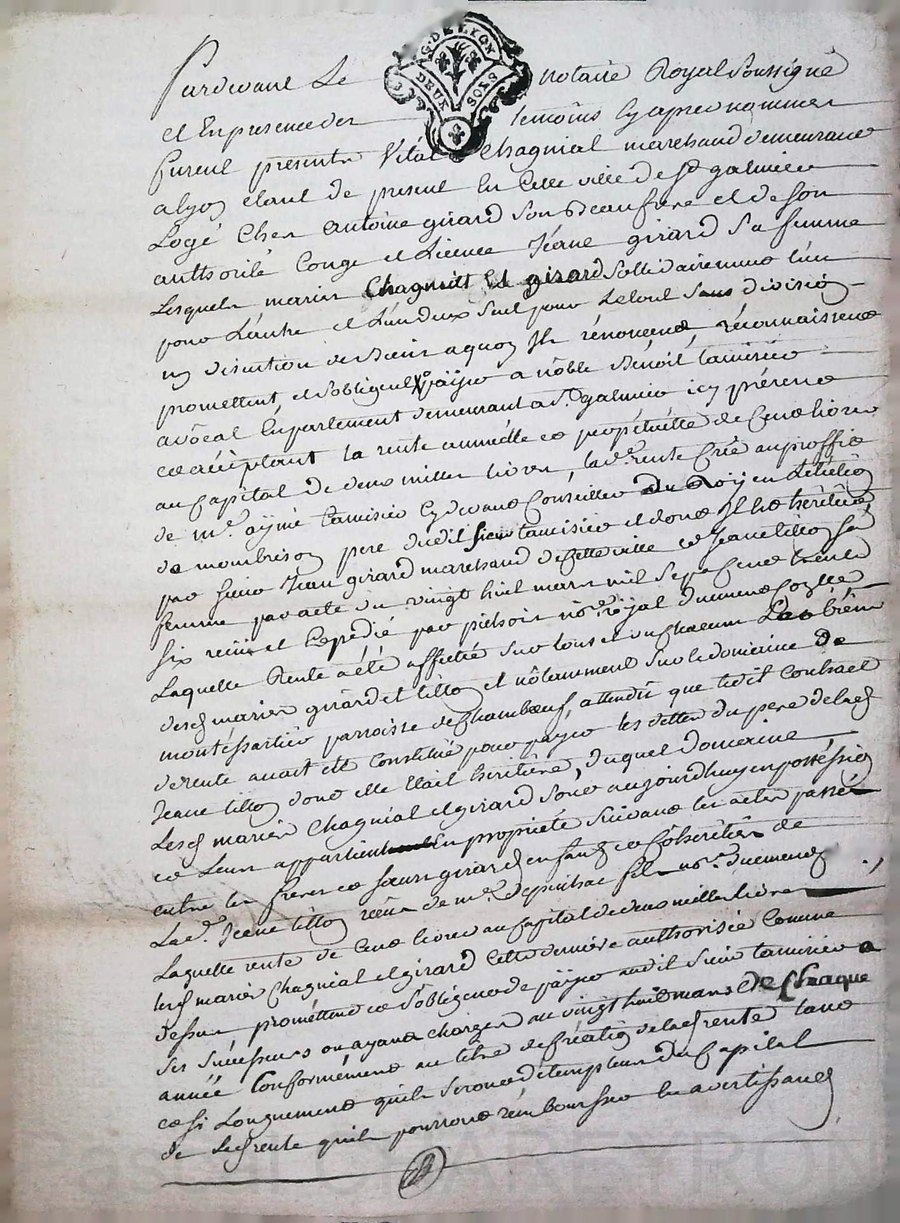 G. DE LYON
DEUX SOLS
Pardevant Le notaire Royal Soussigné
et En presence des temoins Cy apres nommés
fureut présents Vital Chagnial marchand demeurant
a lyon étant de present En Cette ville de St galmier
Logé Chez Antoine girard son Beaufrere et de son
authorité Congé et Licence Jeane girard Sa femme
Lesquels mariés Chagniall Et girard sollidairement L'un
pour L'autre et L'un deux seul pour Le tout sans division
ny discution de Biens a quoy Ils rénoncent réconnaissent
promettent et s'obligent païer a nôble Bénoit tamisier
avôcat En parlement demeurant a St galmier icy présent
et acceptant la rente annuelle et perpétuelle de Cent livres
au Capital de deux milles livres, lad.e rente Créé au proffit
de m.e aymé tamisier Cy devant Conseiller du Roy en L'élection
de montbrison pere dudit sieur tamisier et dont Il est héritier
par sieur Jean girard marchand de Cette ville et Jeane tillon sa
femme par acte du vingt huit mars mil sept Cent trente
six reçu et Expedié par no.re royal
Laquelle Rente a été affectée sur tous et un Chacun Les biens
desd mariés girard et tillon et nôtamment sur le domaine de
montéssartier parroisse de Chambœuf, attendu que ledit Contract
de rente avait eté Constitué pour payer les dettes du pere de lad
Jeane tillon dont elle était héritière, duquel domaine,
Lesd mariés Chagnial et girard sont aujourdhuy en possession
et Leur appartient En propriété suivant les actes passés
entre les freres et sœurs girard enfans et Cohéritiers de
Lad.e Jeane tillon reçus de m.e depuihac fils no.re
Laquelle rente de Cent livres au Capital de deux milles livres
lesd mariés Chagnial et girard Cette derniére authorisée Comme
dessus promettent et s'obligent de païer audit sieur tamisier a
ses successeurs ou ayans charges au vingt huit mars de Chaque
année Conformément au titre de Création de lad rente tant
et si Longuement quils seront détempteurs du Capital
de lad rente quils pourront rembourser en avertissans